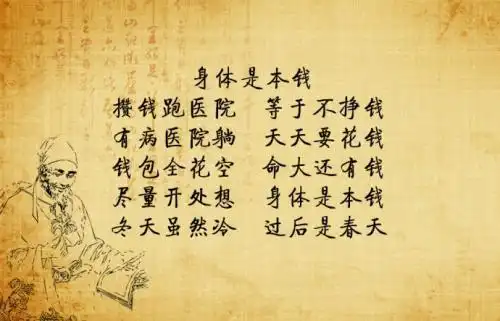 身体是本钱
攒钱跑医院 等于不挣钱
有病医院躺 天天要花钱
钱包全花空 命大还有钱
尽量开处想 身体是本钱
冬天虽然冷 过后是春天